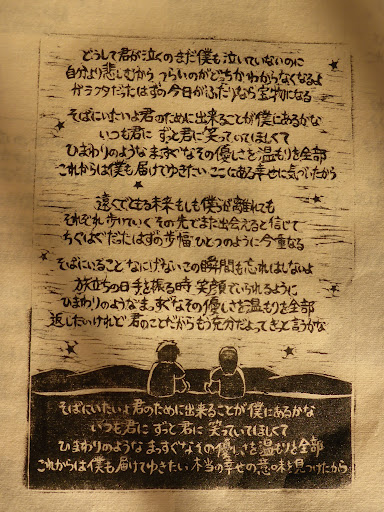 どうして君が泣くの まだ僕も泣いていないのに
自分より悲しむから つらいのがどっちかわからなくなるよ
ガラクタだったはずの今日が ふたりなら宝物になる
そばにいたいよ 君のために出来ることが僕にあるかな
いつも君に ずっと君に 笑っていてほしくて
ひまわりのような まっすぐなその優しさを 温もりを全部
これからは僕も届けてゆきたい ここにある幸せに気づいたから
遠くでともる未来 もしも僕らが離れても
それぞれ歩いていくその先で また出会えると信じて
ちぐはぐだったはずの歩幅 ひとつのように今重なる
そばにいること なにげないこの瞬間も忘れはしないよ
旅立ちの日 手を振る時 笑顔でいられるように
ひまわりのような まっすぐなその優しさを 温もりを全部
返したいけれど 君のことだから もう充分だよってきっと言うかな
そばにいたいよ 君のために出来ることが僕にあるかな
いつも君に ずっと君に 笑っていてほしくて
ひまわりのような まっすぐなその優しさを 温もりを全部
これからは僕も届けてゆきたい 本当の幸せの意味を見つけたから